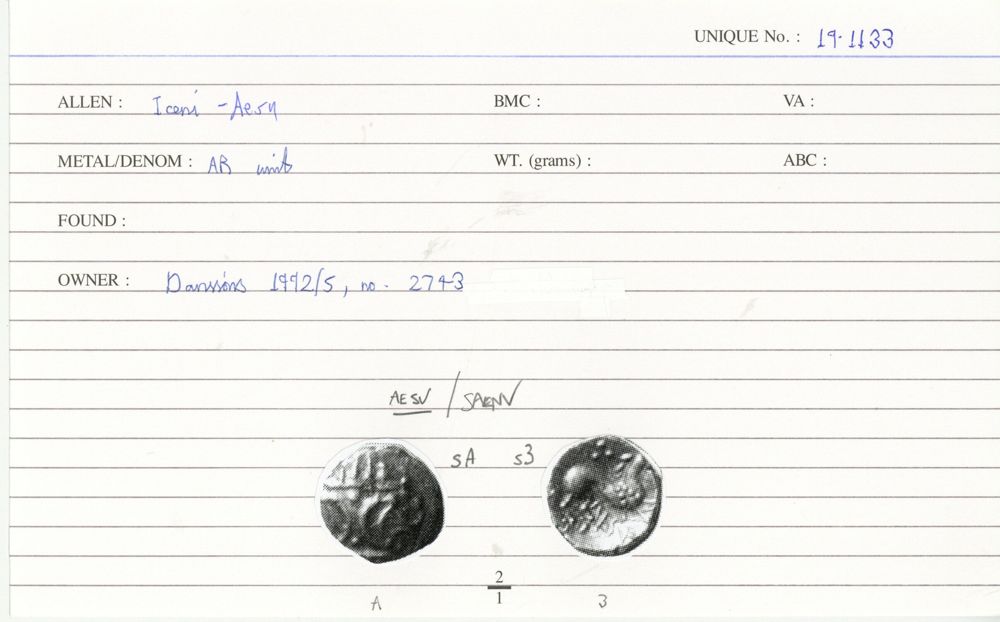 UNIQUE No. : 19.1133
ALLEN : Iceni - Aesu BMC : VA :
METAL/DENOM : AR unit WT. (grams) : ABC :
FOUND :
OWNER : 1992/5, no. 2743
AESV /
sA s3
2
1
A 3